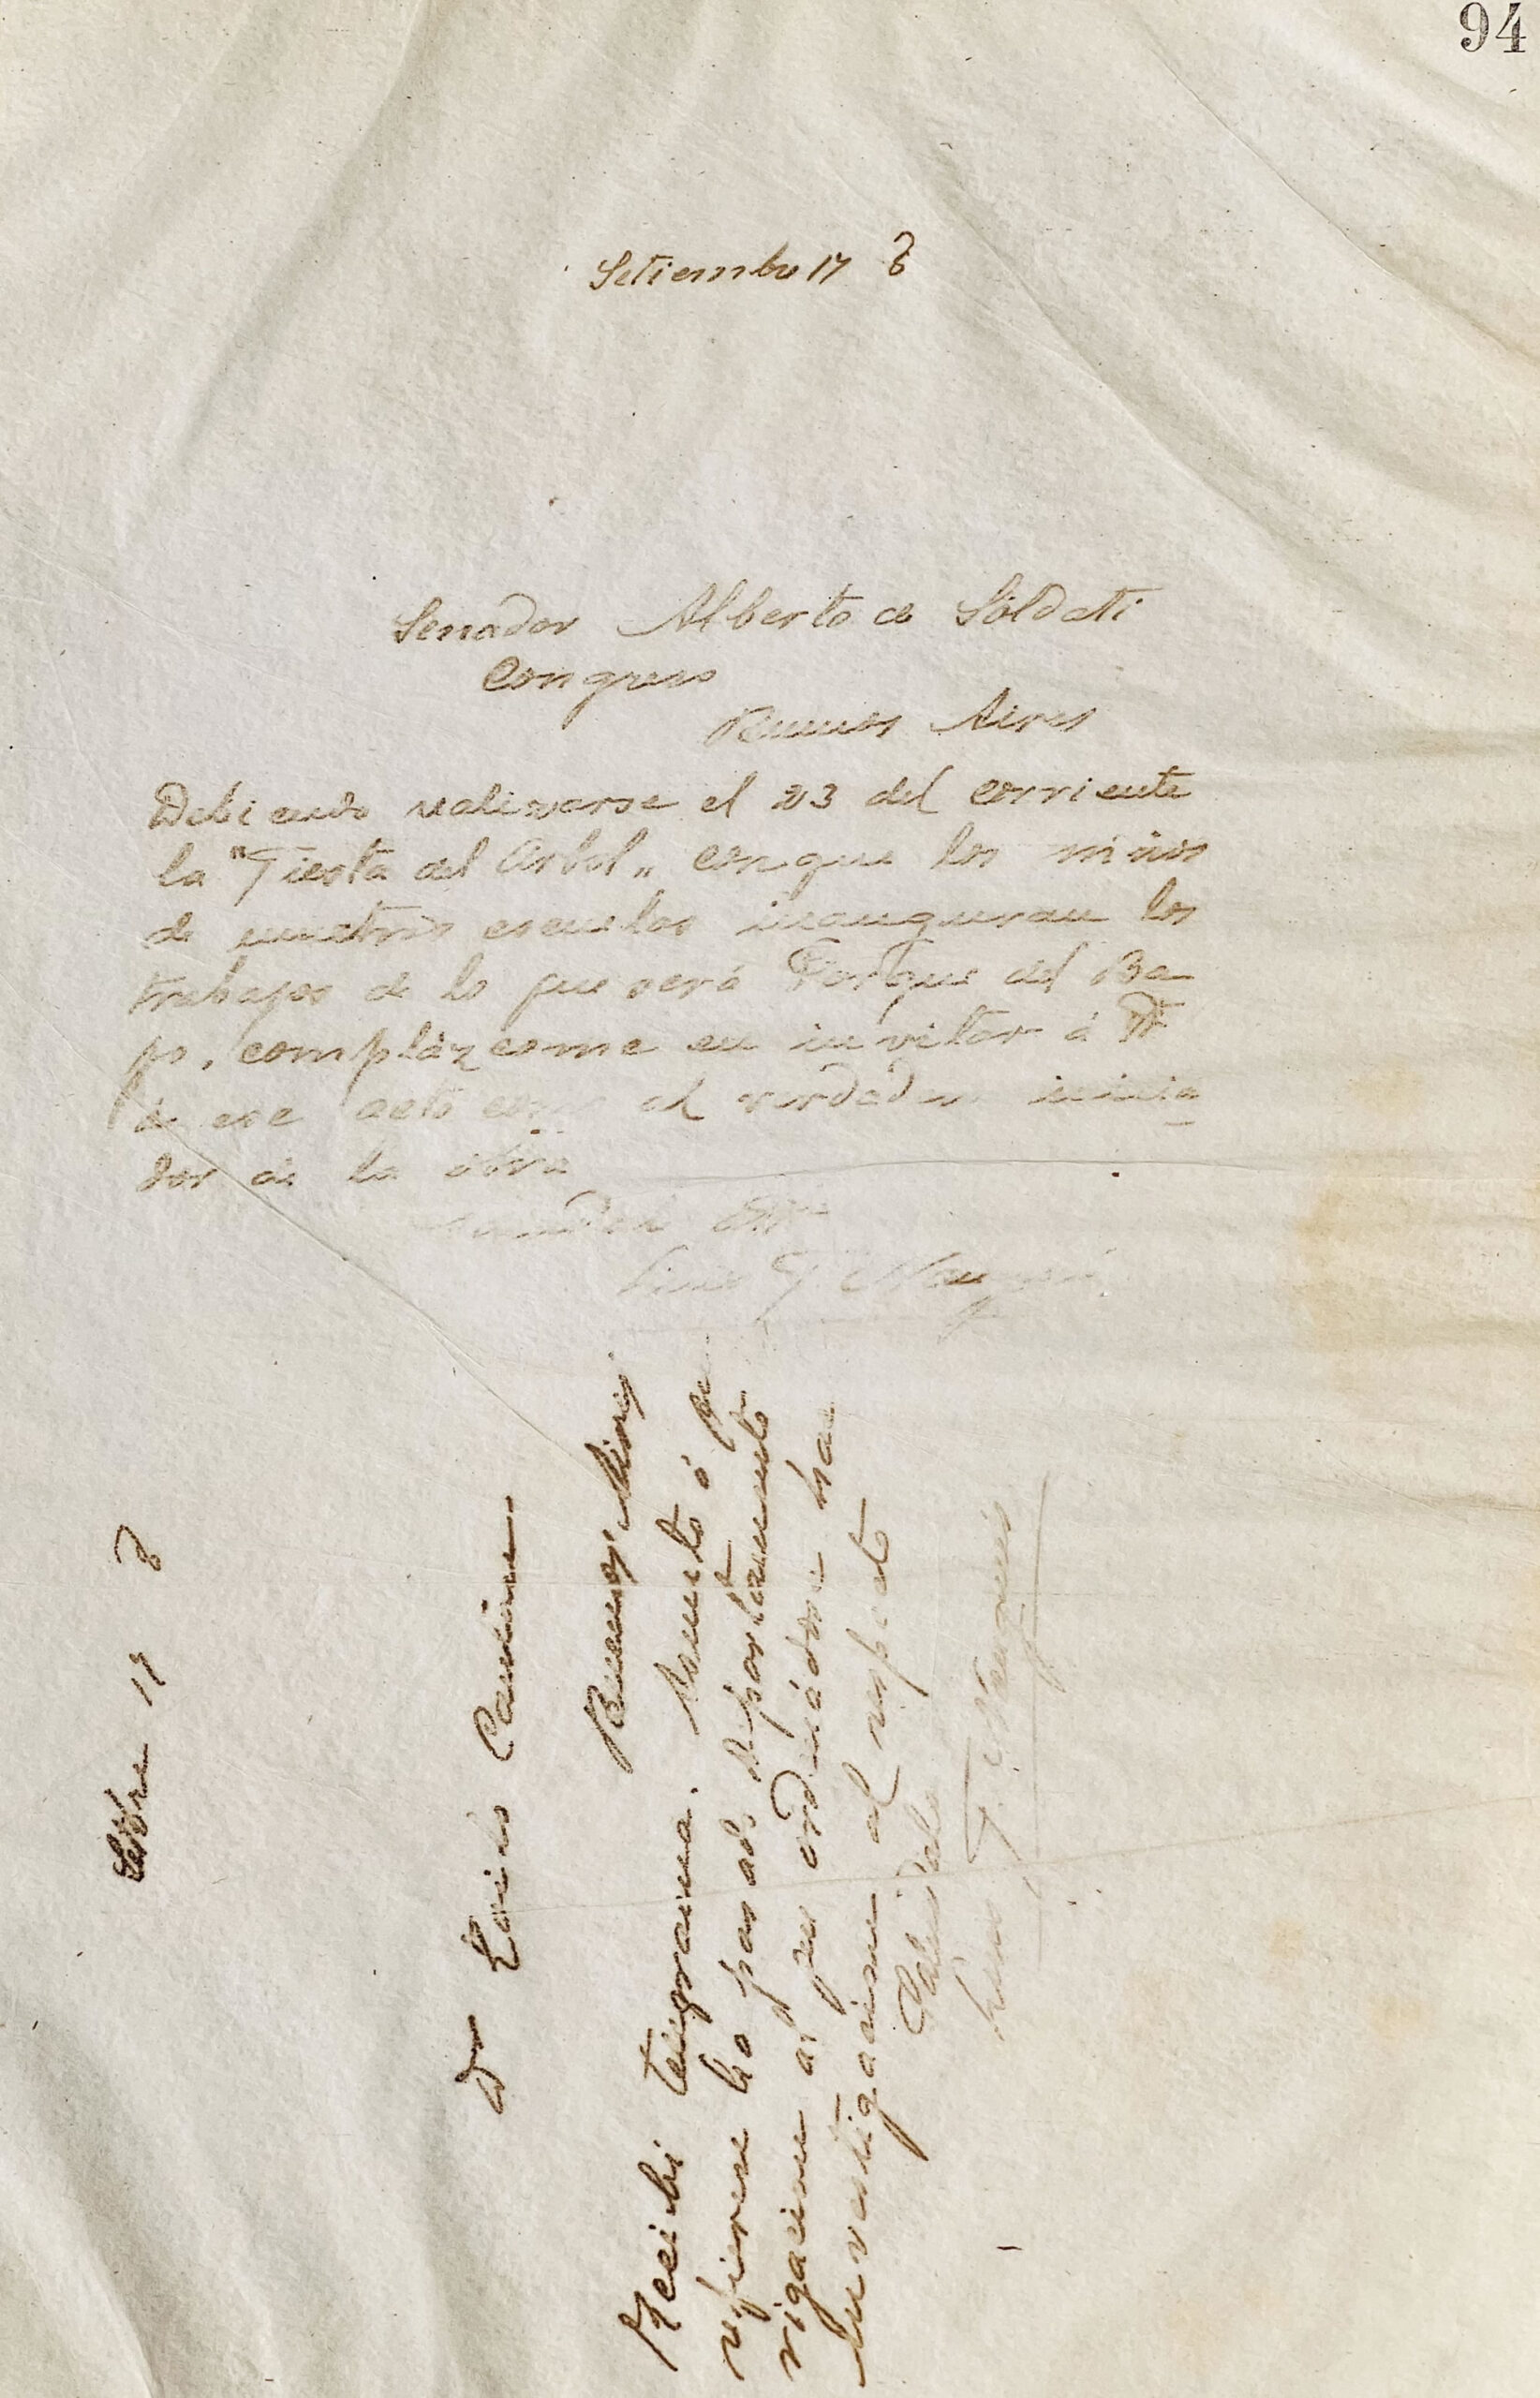 94
Setiembre 17 8
Senador Alberto de Soldati
Congreso
Buenos Aires
Debiendo realizarse el 23 del corriente
la "Fiesta del Arbol" con que los niños
de nuestras escuelas inauguran los
trabajos de lo que será Parque del Ba
jo, complázcome en invitar á
á ese acto como al verdadero inicia
dor de la obra
Luis F. Nougués
Setbre 17 8
Dr
Buenos Aires
Recibi telegrama. Asunto á que
refiere ha pasado departamento
al que
investigación al respecto
Salúdalo
Luis F. Nougués